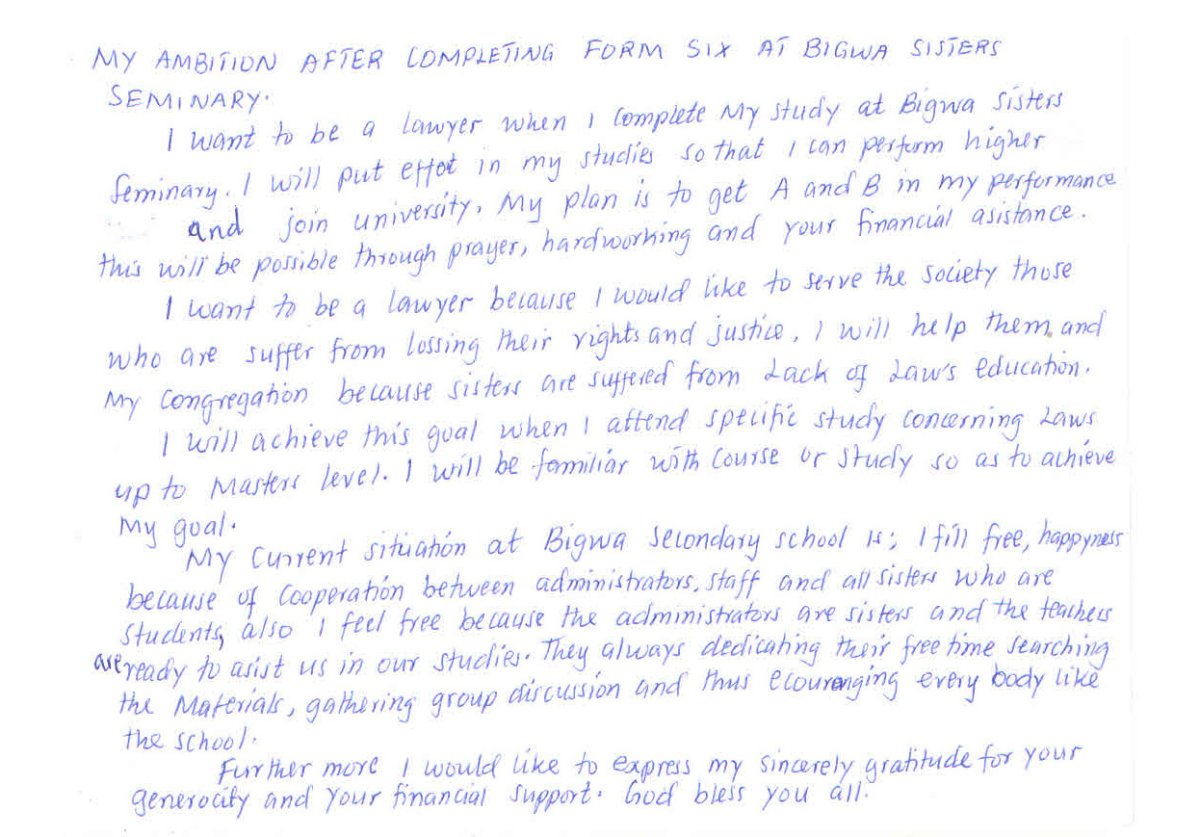 MY AMBITION AFTER COMPLETING FORM SIX AT BIGWA SISTERS
SEMINARY.
I want to be a lawyer when I complete My study at Bigwa Sisters
Seminary. I will put effot in my studies so that I can perfurm higher
and join university. My plan is to get A and B in my performance
this will be possible through prayer, hardworking and your financial asistance.
I want to be a lawyer because I would like to serve the society those
who are suffer from lossing their rights and justice, I will help them, and
My Congregation because sisters are suffered from Lack of Law's education.
I will achieve this goal when I attend specific study concerning Laws
up to Masters level. I will be familiar with Course or study so as to achieve
My goal.
My Current situation at Bigwa Secondary school is; I fill free, happyness
because of Cooperation between administrators, staff and all sisters who are
students, also I feel free because the administrators are sisters and the teachers
are ready to asist us in our studies. They always dedicating their free time searching
the Materials, gathering group discussion and thus ecouranging every body like
the school.
Further more I would like to express my sincerely gratitude for your
generocity and your financial support. God bless you all.